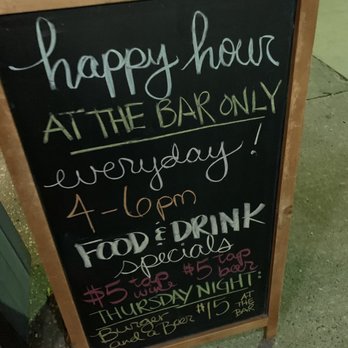 happy hour
AT THE BAR ONLY
everyday!
4-6pm
FOOD & DRINK
specials
$5 tap wine $5 tap beer
THURSDAY NIGHT:
Burger and a Beer $15 AT THE BAR